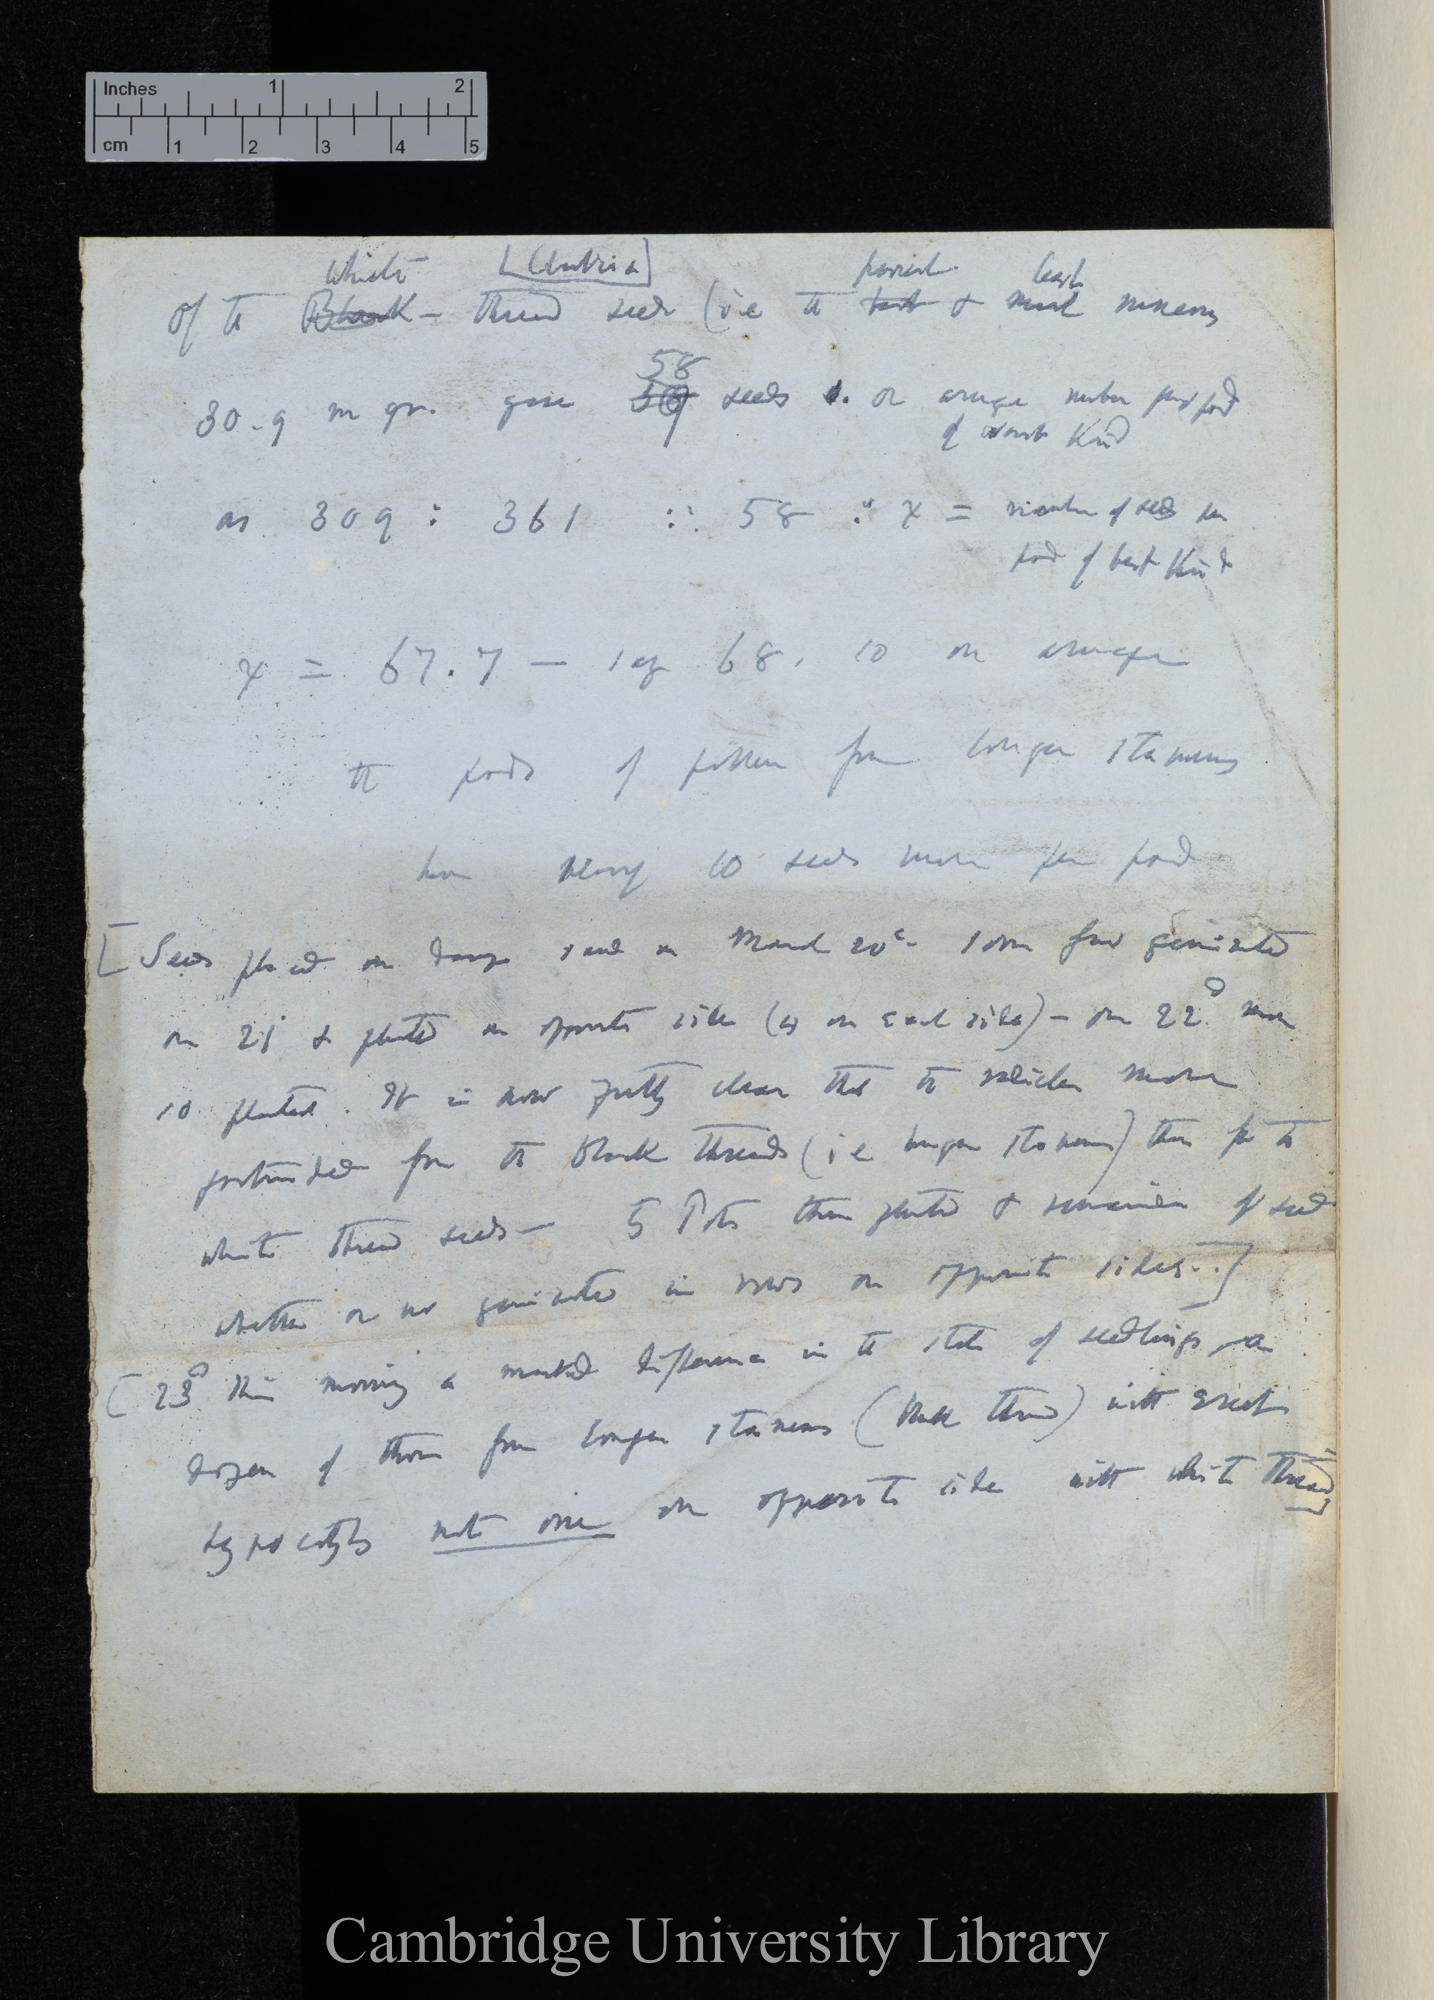 Inches 1 2
cm 1 2 3 4 5
White
of th Black – thread seeds (i.e th & least numerous
58
30.9 m gr. gave 59 seeds or average number per pod
of worst kind
as 309 : 361 :: 58 : x = number of seeds in
pod of best kind
x = 67.7 – say 68. 10 on average
th pods of pollen from longer stamens
have nearly 10 seeds more per pod
[Seeds placed on damp sand on March 20th some few germinated
on 21 & planted on opposite sides (4 on each side) – on 22d more
10 planted. It is now pretty clear that th radicles more
protruded from th Black threads (i e longer stamens) than for th
white thread seeds – 5 Pots then planted & remainder of seed
whether or not germinated in rows on opposite sides..]
[23d this morning a marked difference in th state of seedlings, a
dozen of those from longer stamens (black thread) with erect
hypocotyls not one on opposite side with white thread]
Cambridge University Library